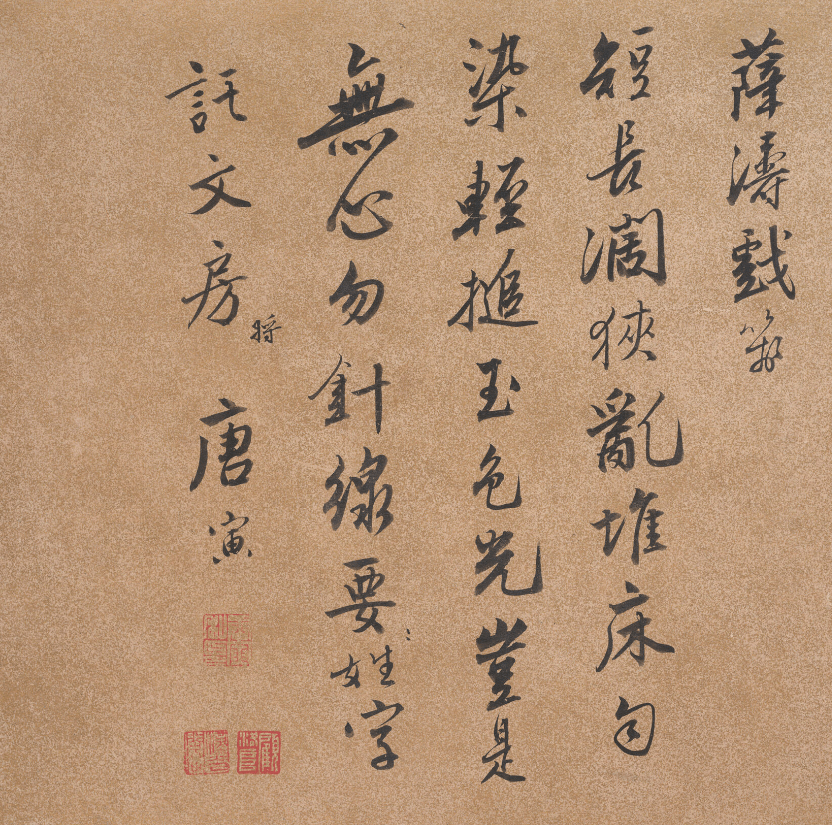 薛濤戲箋
短長濶狹亂堆床匀
染輕搥玉色光豈是
無心勿針線要姓字
託文房 將
唐寅